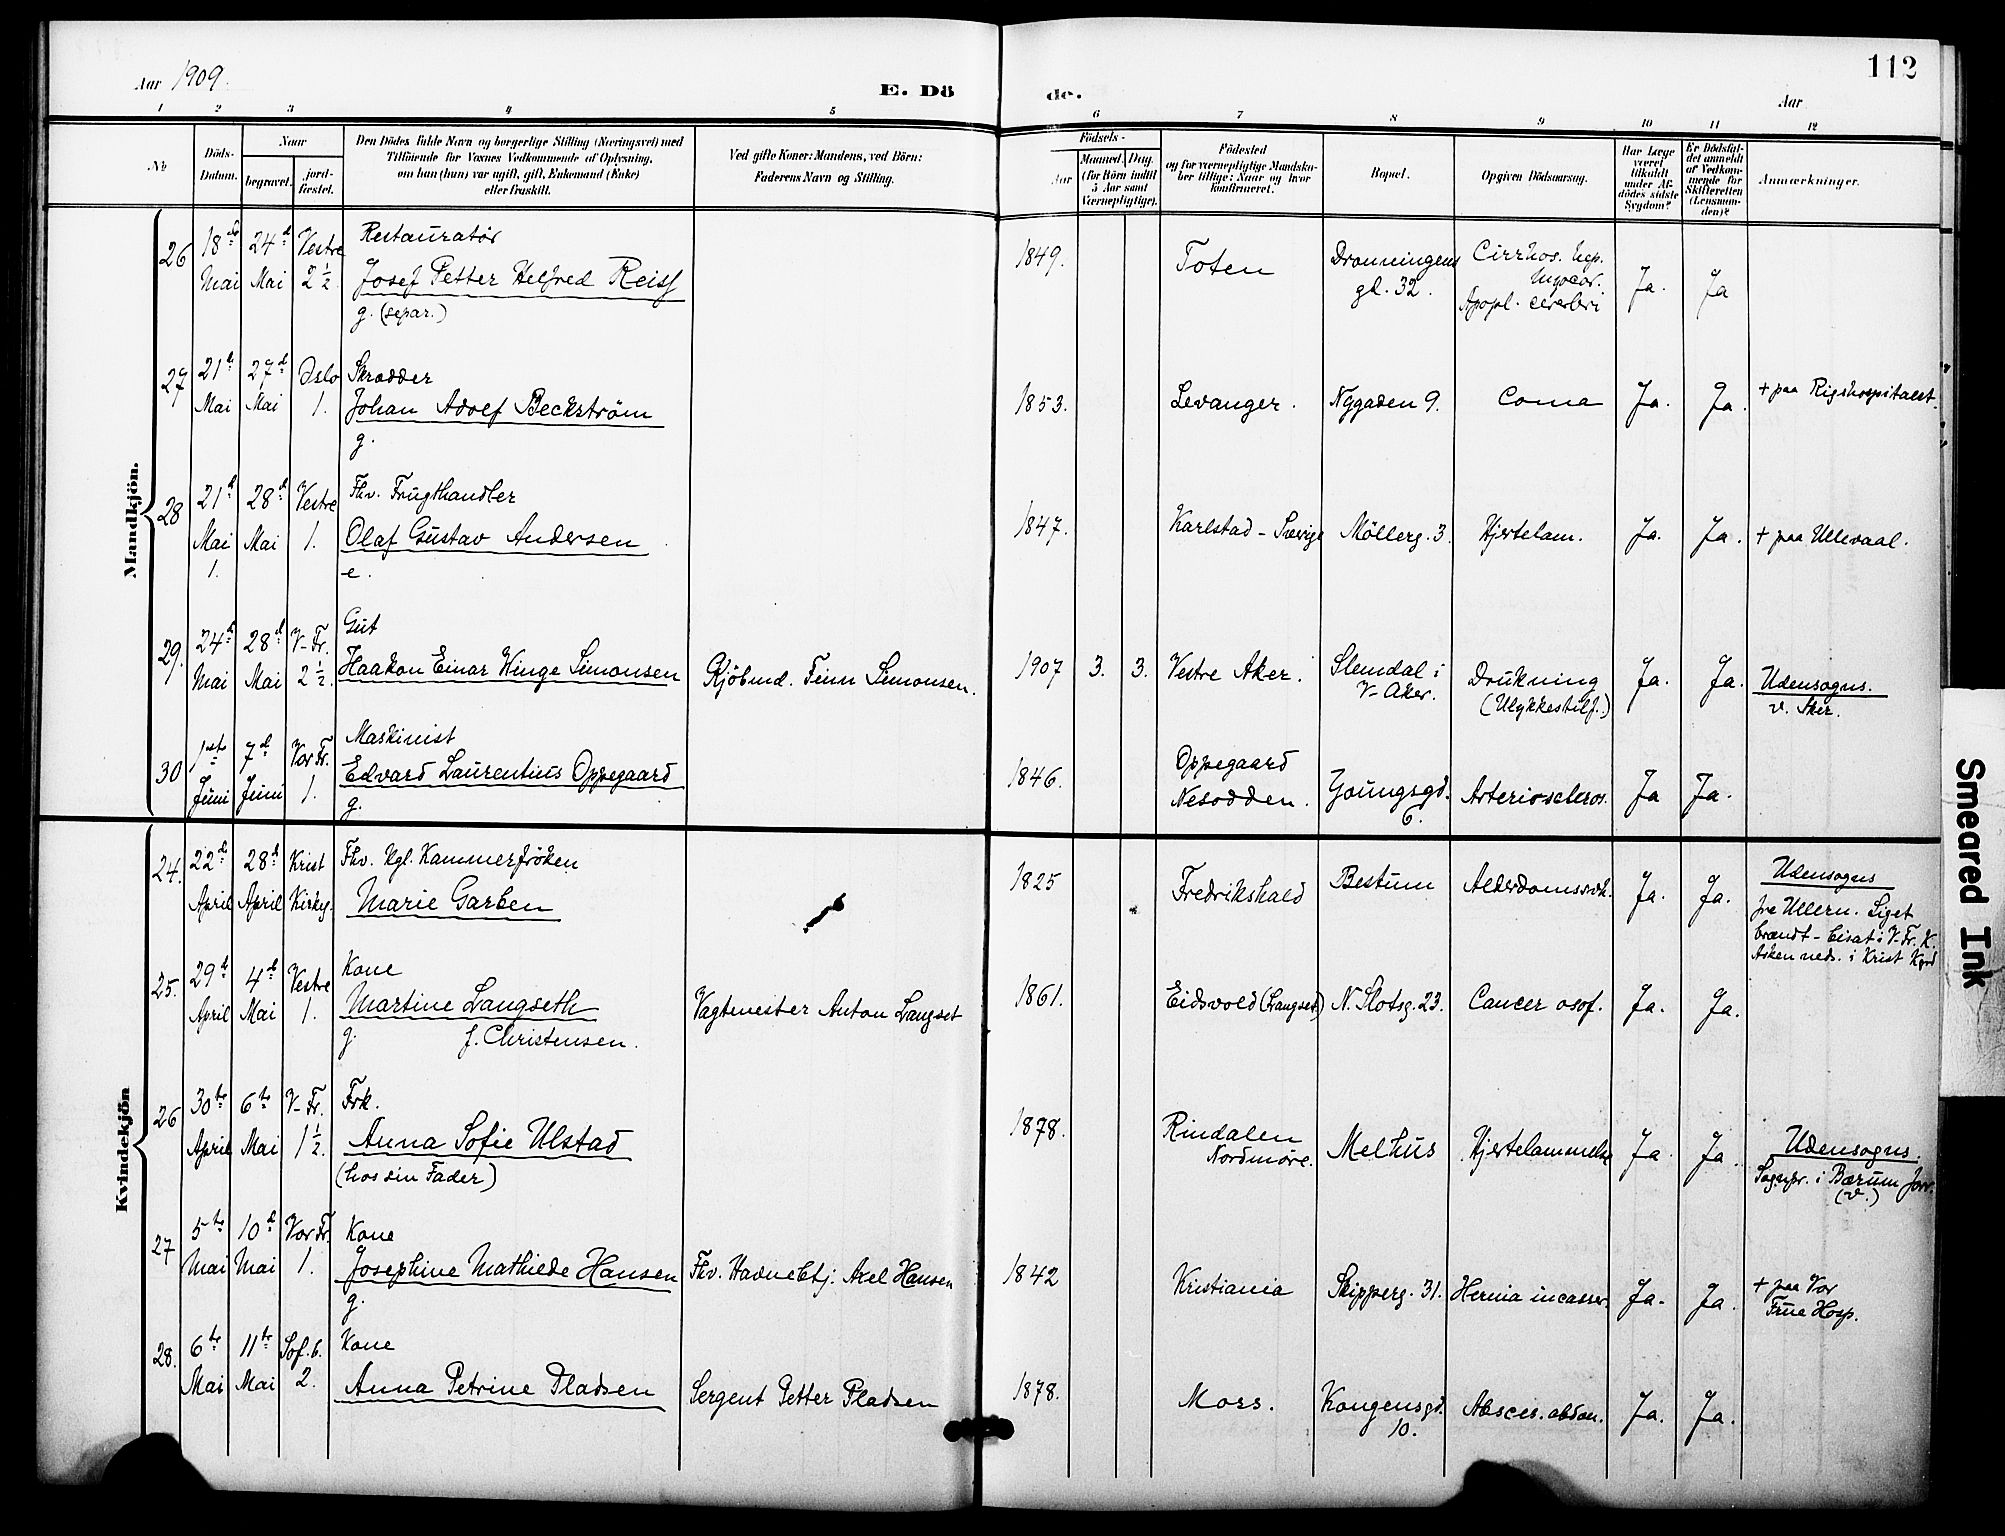 112
Aar 1909.
E. Dö
de.
Aar
1 2 3 4 5 6 7 8 9 10 11 12
No
Döds-Datum.
Naar
begravet.
jord-fæstet.
Den Dödes fulde Navn og borgerlige Stilling (Næringsvei) med
Tilföiende for Voxnes Vedkommende af Oplysning,
om han (hun) var ugift, gift, Enkemand (Enke)
eller fraskilt.
Ved gifte Koner: Mandens, ved Börn:
Faderens Navn og Stilling.
Födsels-
Aar
Maaned. Dag.
(for Börn indtil
5 Aar samt
Værnepligtige).
Födested
og for værnepligtige Mandska-
ber tillige: Naar og hvor
konfirmeret.
Bopæl.
Opgiven Dödsaarsag.
Har Læge
været
tilkaldt
under Af-
dödes sidste
Sygdom?
Er Dödsfal-
det anmeldt
af Vedkom-
mende for
Skifteretten
(Lensman-
den)?
Anmærkninger.
Mandkjön.
26 18de Mai 24d Mai Vestre 2 1/2
Restauratör
Josef Petter Helfred Reiss
g. (separ.)
1849. Toten Dronningens gt. 32. Cirrhos. hep. Myocar. Apopl. cerebri Ja. Ja
27 21d Mai 27d Mai Oslo 1.
Skrædder
Johan Adolf Beckström
g.
1853. Levanger. Nygaden 9. Coma Ja. Ja. + paa Rigshospitalet.
28 21d Mai 28d Mai Vestre 1.
1.
Fhv. Frugthandler
Olaf Gustav Andersen
e.
1847. Karlstad - Sverige Möllerg. 3. Hjertelam. Ja. Ja. + paa Ullevaal.
29. 24d Mai 28d Mai V- Fr. 2 1/2.
Gut
Haakon Einar Winge Simonsen
Kjöbmd. Finn Simonsen.
1907 3. 3. Vestre Aker. Slemdal i V- Aker. Drukning (Ulykkestilf.) Ja. Ja. Udensogns. v. Aker.
30 1ste Juni 7d Juni Vor Fr. 1.
Maskinist
Edvard Laurentius Oppegaard
g.
1846. Oppegaard Nesodden. Youngsgd. 6. Arterioscleros. Ja Ja.
Kvindekjön
24. 22d April 28d April Krist Kirkg.
Fhv. Kgl. Kammerfröken
Marie Garben
1825 Fredrikshald Bestum Alderdomssvk. Ja. Ja.
Udensogns
fra Ullern. Liget
brændt - bisat i V. Fr. K.
Asken neds. i Krist Kgrd
25. 29de April 4d Mai Vestre 1.
Kone
Martine Langseth
g. f. Christensen.
Vagtmester Anton Langset
1861. Eidsvold (Langset) N. Slotsg. 23. Cancer osof. Ja. Ja.
26 30te April 6te Mai V- Fr. 1 1/2.
Frk.
Anna Sofie Ulstad
(hos sin Fader)
1878. Rindalen Nordmöre. Melhus Hjertelammelse Ja Ja.
Udensogns.
Sognpr. i Bærum
(v.)
27 5te Mai 10d Mai Vor Fr. 1.
Kone
Josephine Mathilde Hansen
g.
Fhv. Havnebtj. Axel Hansen
1842 Kristiania Skipperg. 31. Hernia incarcer. Ja. Ja. + paa Vor Frue Hosp.
28. 6te Mai 11te Mai Sof. b. 2.
Kone
Anna Petrine Pladsen
Sergent Petter Pladsen
1878. Moss. Kongensgd. 10. Absces. abdom. Ja. Ja.
Smeared Ink